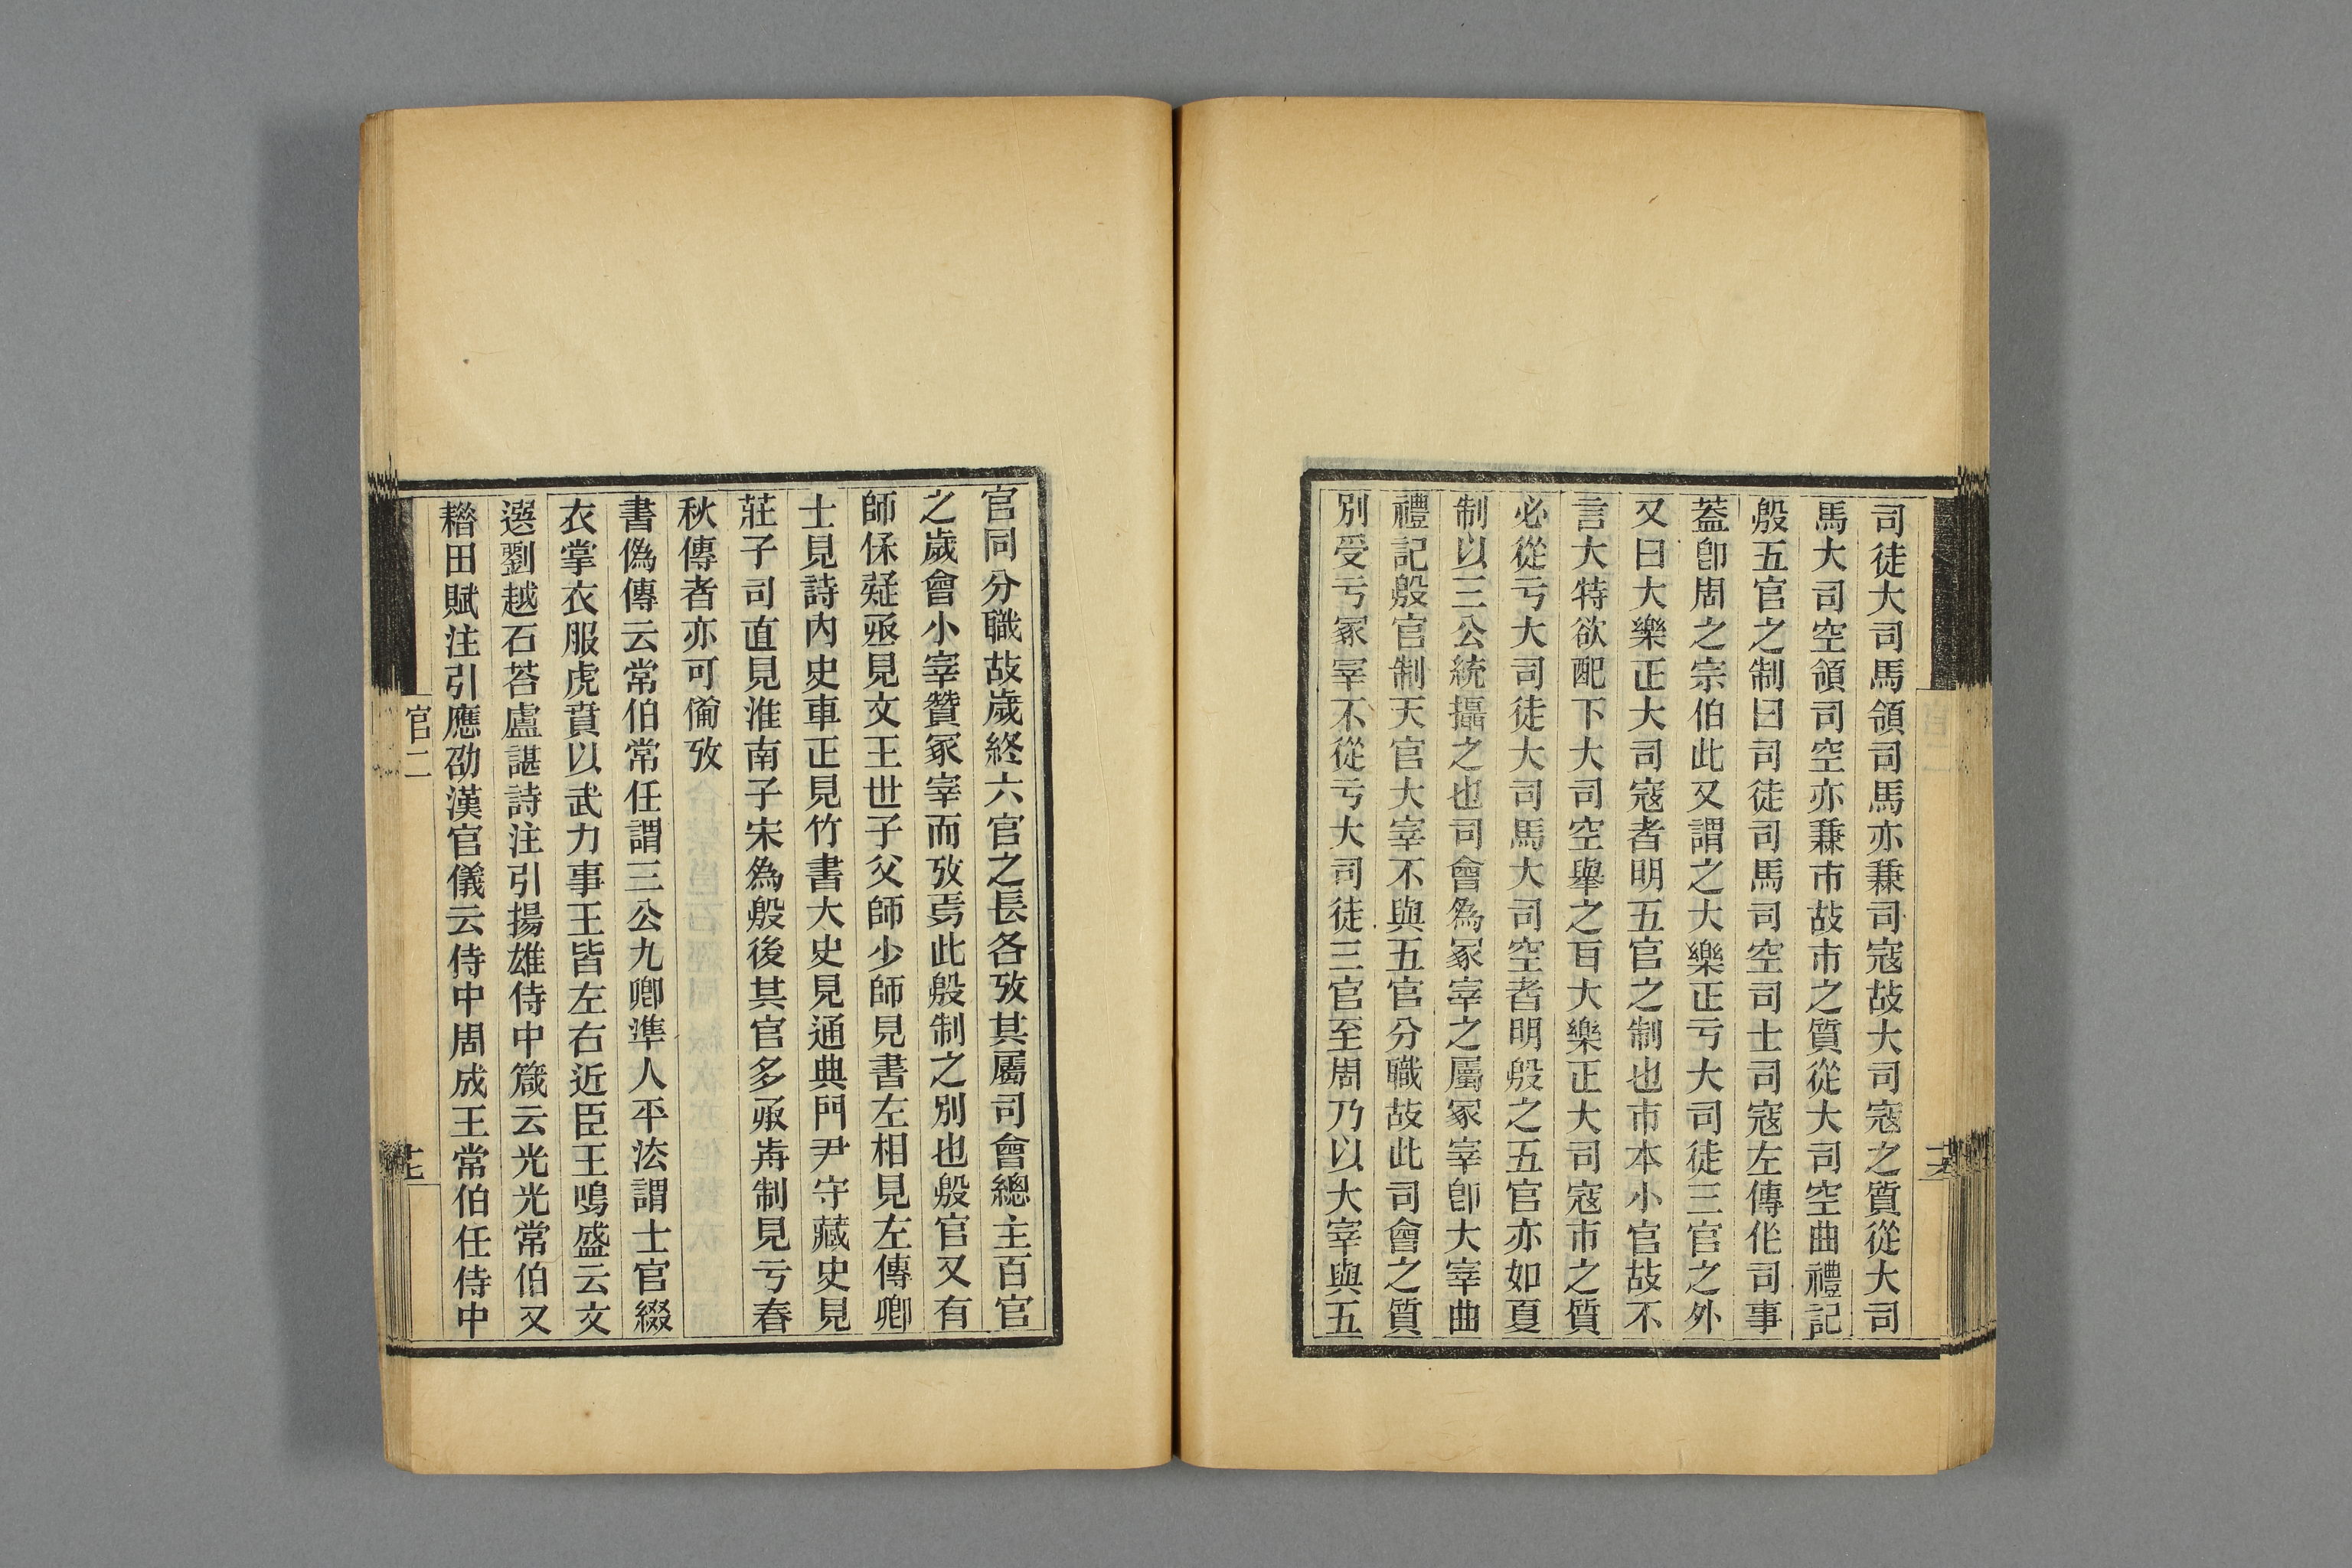 司徒大司馬領司馬亦兼司寇故大司寇之質從大司
馬大司空領司空亦兼市故市之質從大司空曲禮記
殷五官之制曰司徒司馬司空司士司寇左傳作司事
葢卽周之宗伯此又謂之大樂正亏大司徒三官之外
又曰大樂正大司寇者明五官之制也市本小官故不
言大特欲配下大司空舉之百大樂正大司寇市之質
必從亏大司徒大司馬大司空者明殷之五官亦如夏
制以三公統攝之也司會爲冢宰之屬冢宰卽大宰曲
禮記殷官制天官大宰不與五官分職故此司會之質
別受亏冢宰不從亏大司徒三官至周乃以大宰與五
官同分職故歲終六官之長各攷其屬司會總主百官
之歲會小宰贊冢宰而攷焉此殷制之別也殷官又有
師保疑丞見文王世子父師少師見書左相見左傳卿
士見詩內史車正見竹書大史見通典門尹守藏史見
莊子司直見淮南子宋爲殷後其官多承歬制見亏春
秋傳者亦可僃攷
書僞傳云常伯常任謂三公九卿準人平法謂士官綴
衣掌衣服虎賁以武力事王皆左右近臣王鳴盛云文
選劉越石荅盧諶詩注引揚雄侍中箴云光光常伯又
耤田賦注引應劭漢官儀云侍中周成王常伯任侍中
官二
十七